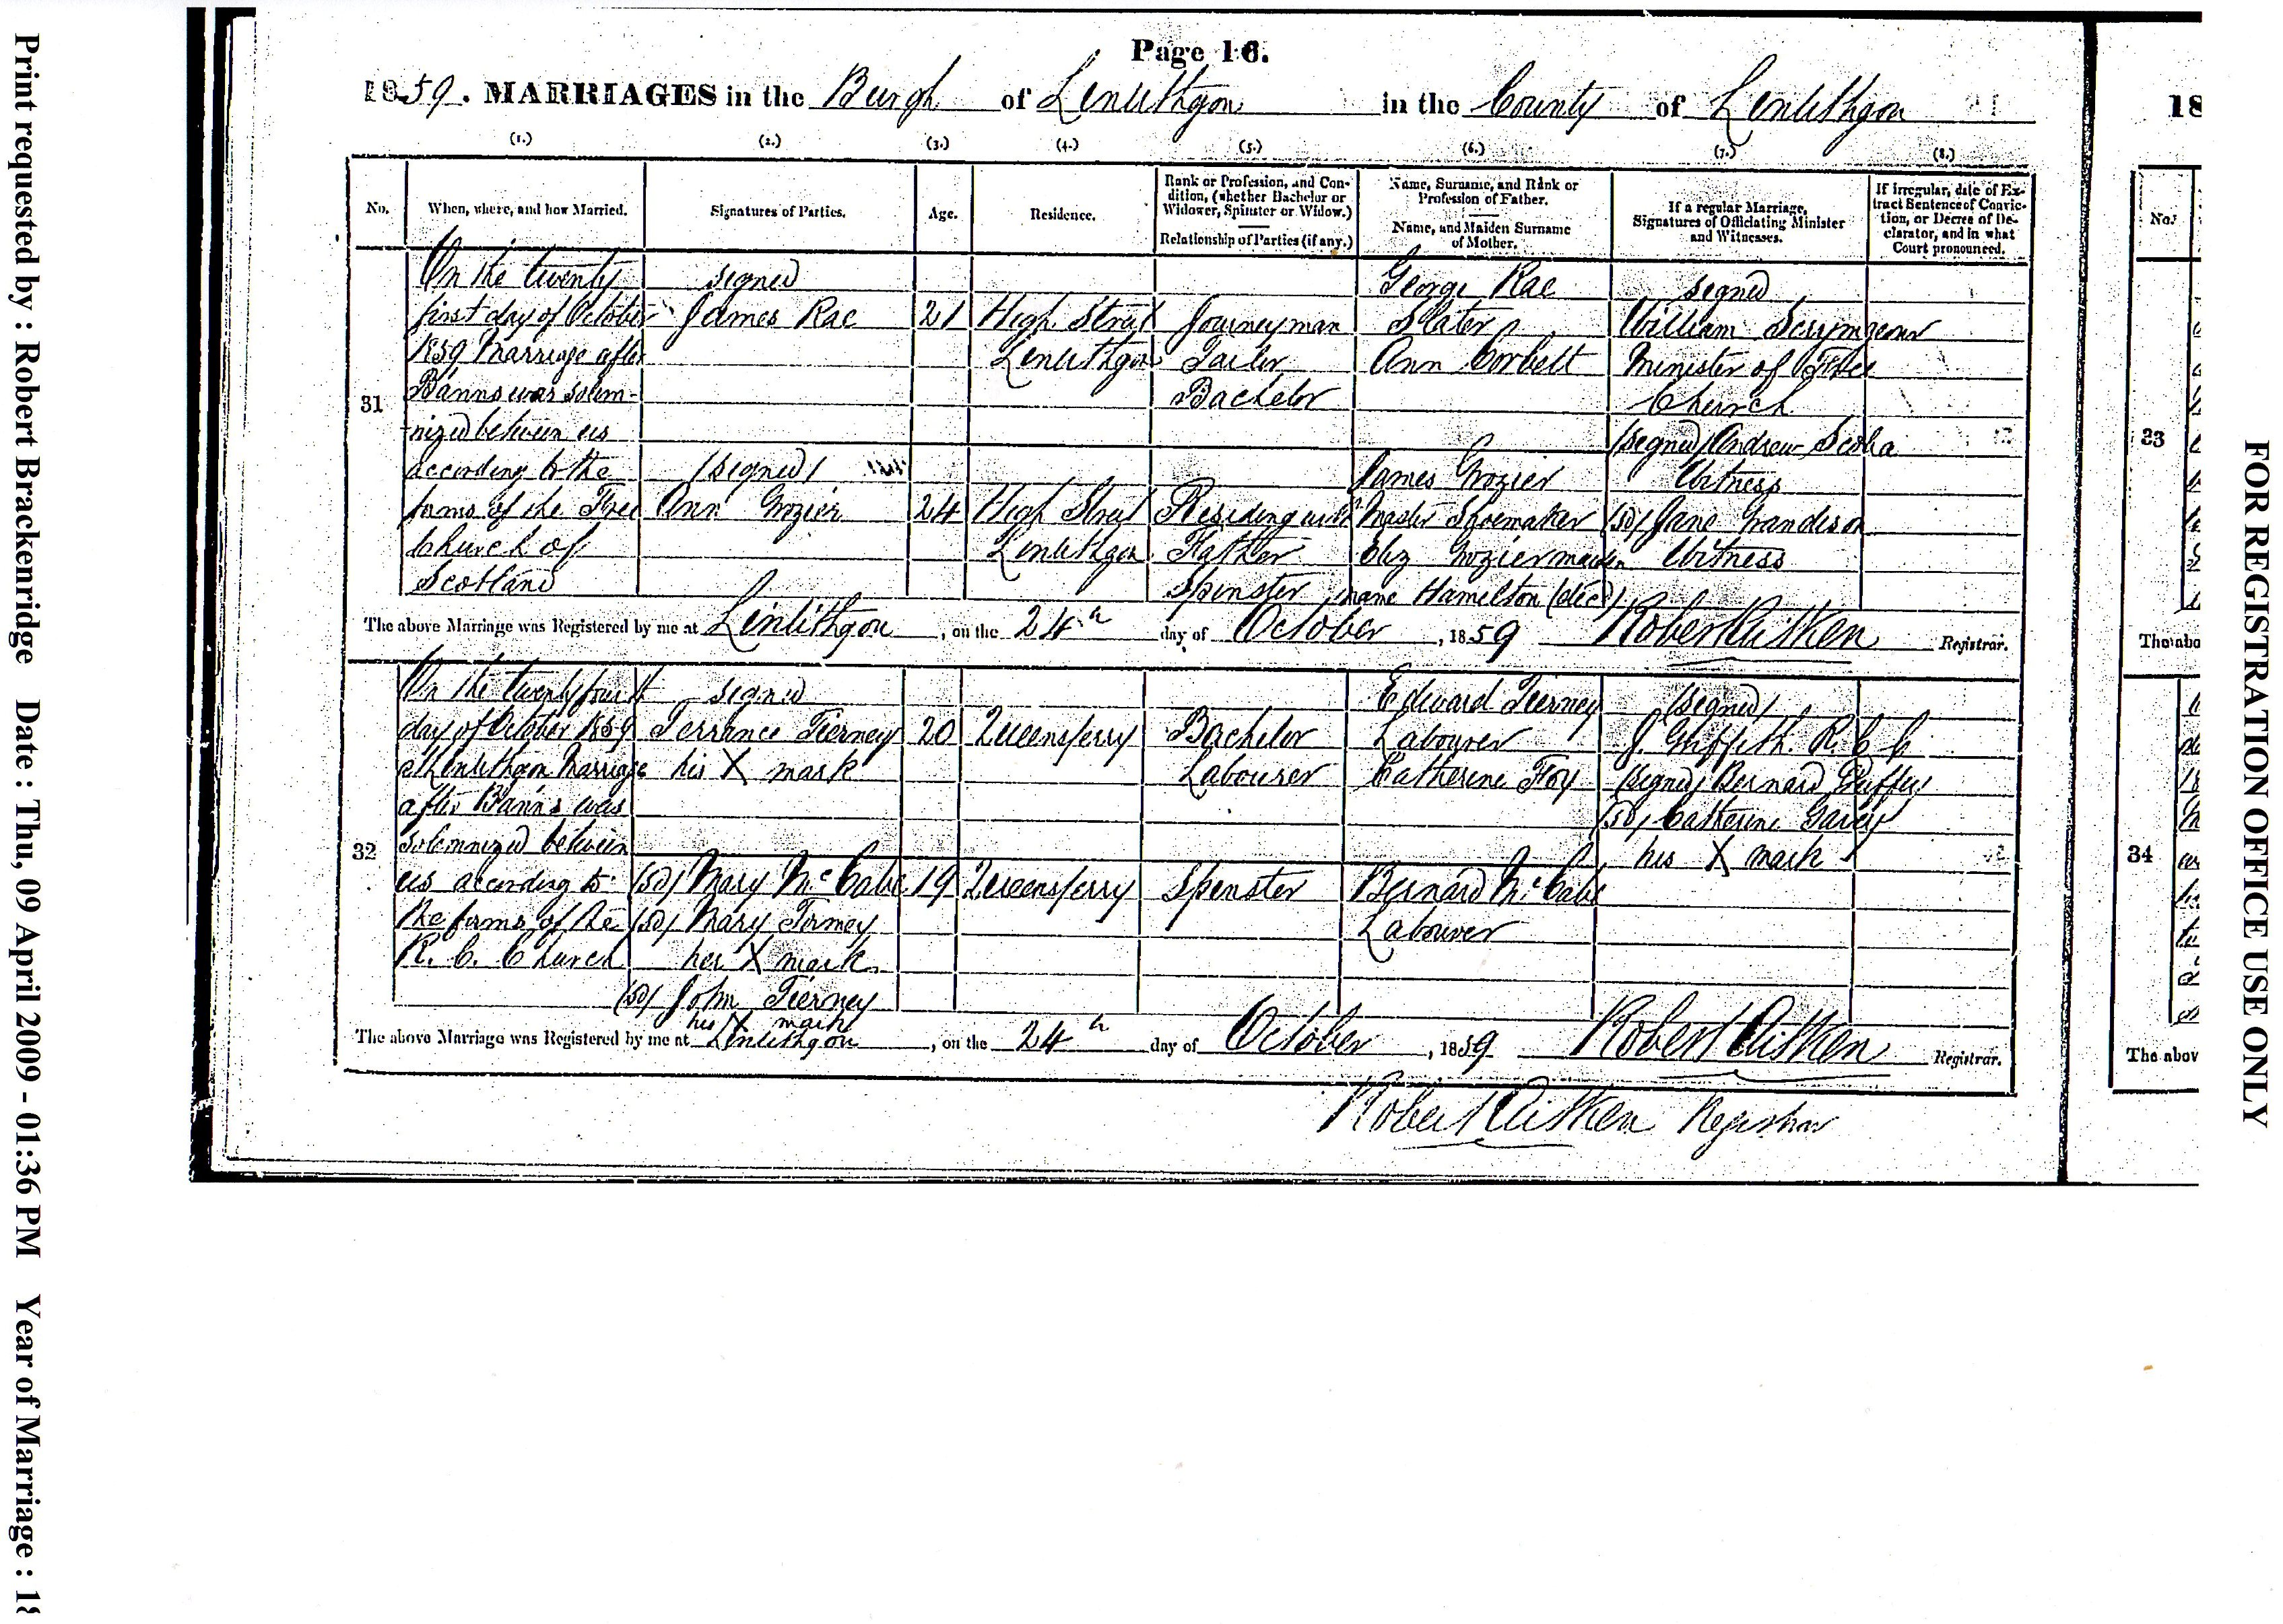 Page 16.
1859. MARRIAGES in the Burgh of Linlithgow in the County of Linlithgow
(1.) (2.) (3.) (4.) (5.) (6.) (7.) (8.)
No. When, where, and how Married. Signatures of Parties. Age. Residence. Rank or Profession, and Condition, (whether Bachelor or Widower, Spinster or Widow.) Relationship of Parties (if any.) Name, Surname, and Rank or Profession of Father. Name, and Maiden Surname of Mother. If a regular Marriage, Signatures of Officiating Minister and Witnesses. If irregular, date of Extract Sentence of Conviction, or Decree of Declarator, and in what Court pronounced.
31
On the twenty signed George Rae signed
first day of October James Rae 21 High Street Journeyman Slater William Scrymgeour
1859 Marriage after Linlithgow Tailor Ann Corbett Minister of Free
Banns was solem- Bachelor Church
nized between us (signed) Andrew Scoba
according to the (signed) James Grozier Witness
forms of the Free Ann Grozier 24 High Street Residing with Master Shoemaker (sd) Jane Grandison
Church of Linlithgow Father Eliz Grozier maiden Witness
Scotland Spinster name Hamelton (decd)
The above Marriage was Registered by me at Linlithgow, on the 24th day of October, 1859 Robert Aitken Registrar.
32
On the twenty fourth signed Edward Tierney (signed)
day of October 1859 Terrance Tierney 20 Queensferry Bachelor Labourer J. Griffith R. C C
at Linlithgow Marriage his X mark Labourer Catherine Foy (signed) Bernard Duffy
after Banns was (sd) Catherine Garey
solemnized between his X mark
us according to (sd) Mary McCabe 19 Queensferry Spinster Bernard McCabe
the forms of the (sd) Mary Tirney Labourer
R. C. Church her X mark
(sd) John Tierney
his X mark
The above Marriage was Registered by me at Linlithgow, on the 24th day of October, 1859 Robert Aitken Registrar.
Robert Aitken Registrar
18
No.
33
The abo
34
The abov
Print requested by : Robert Brackenridge Date : Thu, 09 April 2009 - 01:36 PM Year of Marriage : 18
FOR REGISTRATION OFFICE USE ONLY